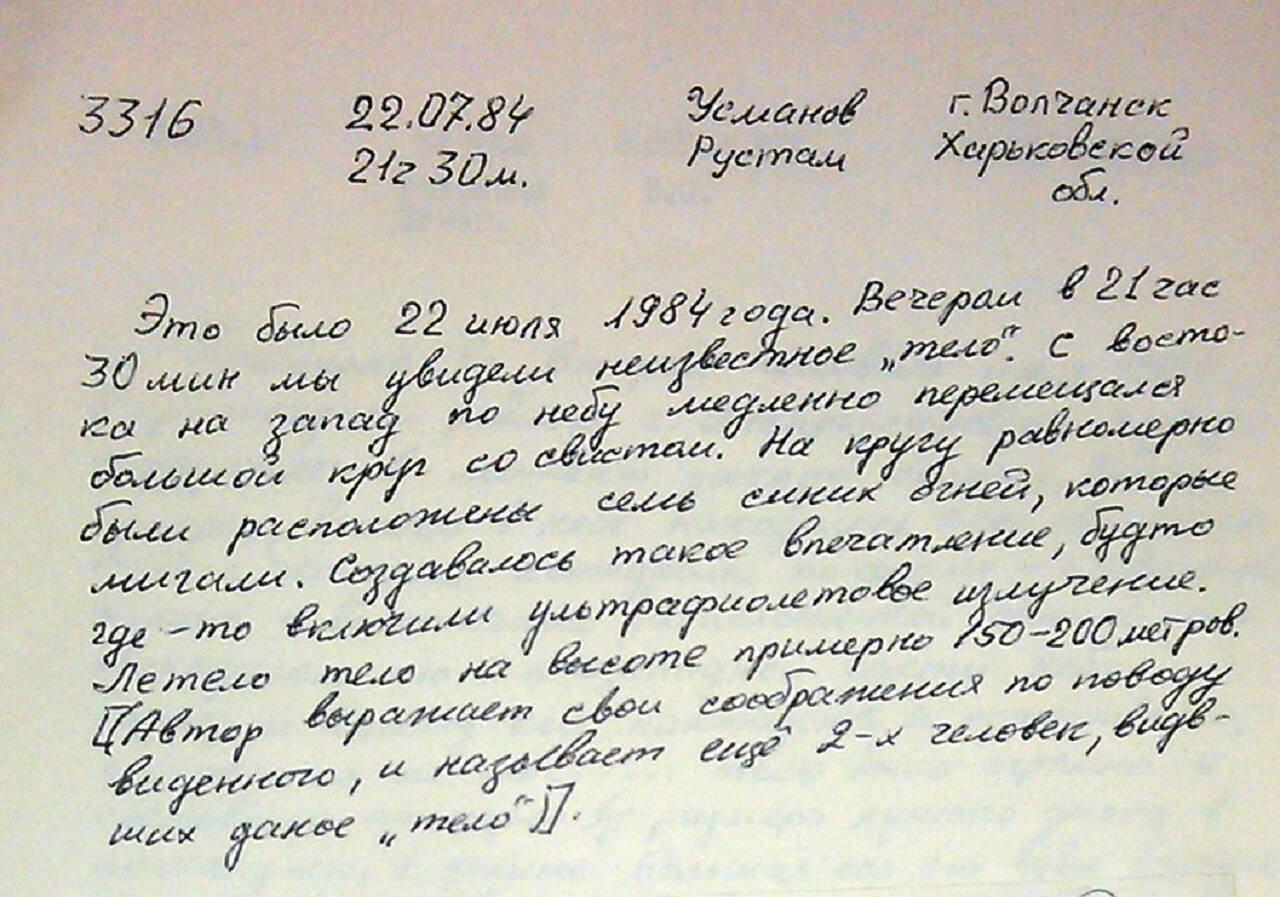 3316 22.07.84 Усманов г. Волчанск
21ч 30м. Рустам Харьковской
обл.
Это было 22 июля 1984 года. Вечером в 21 час
30 мин мы увидели неизвестное „тело“. С восто-
ка на запад по небу медленно перемещался
большой круг со свистом. На кругу равномерно
были расположены семь синих огней, которые
мигали. Создавалось такое впечатление, будто
где-то включили ультрафиолетовое излучение.
Летело тело на высоте примерно 150-200 метров.
[(Автор выражает свои соображения по поводу
виденного, и называет ещё 2-х человек, видв-
ших даное „тело“)].